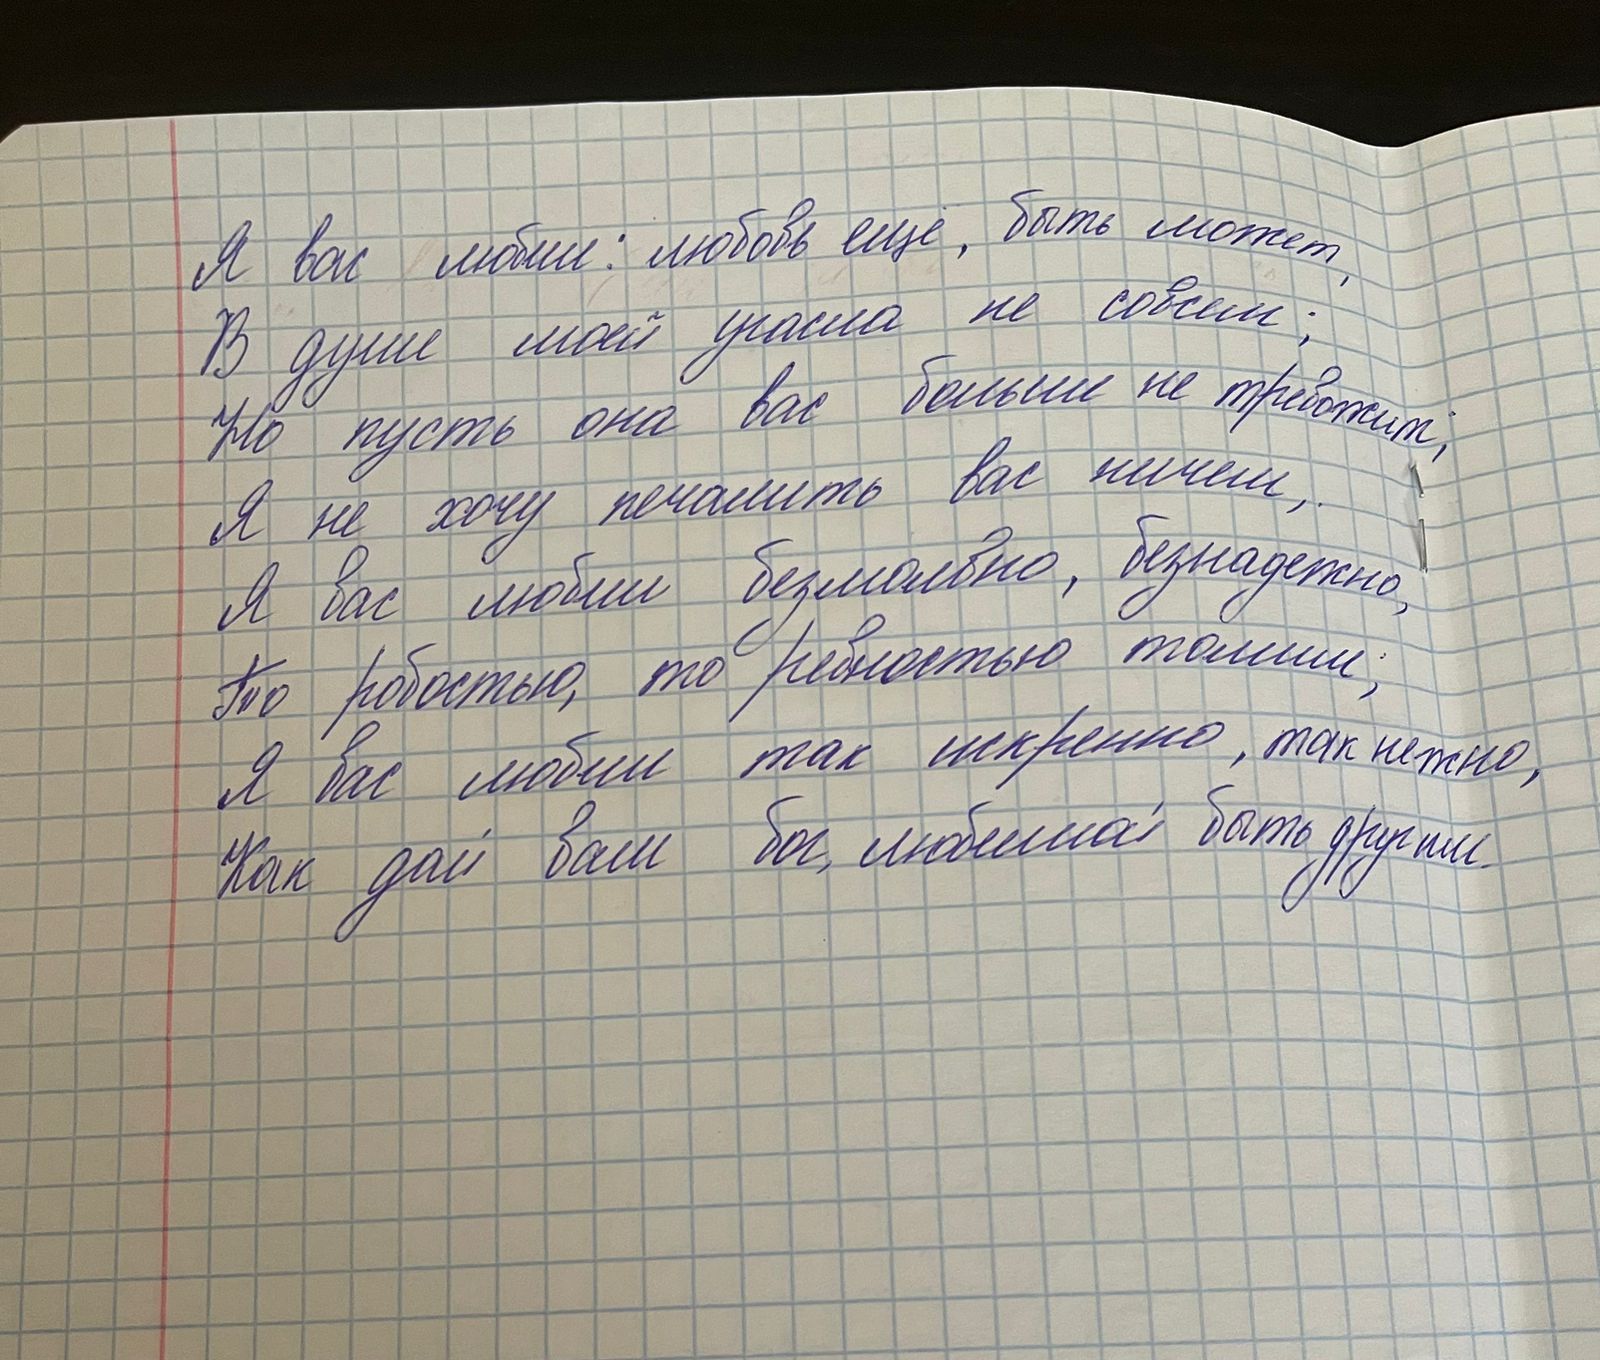 Я вас любил: любовь ещё, быть может,
В душе моей угасла не совсем;
Но пусть она вас больше не тревожит;
Я не хочу печалить вас ничем,.
Я вас любил безмолвно, безнадежно,
То робостью, то ревностью томим;
Я вас любил так искренно, так нежно,
Как дай вам бог, любимой быть другим.